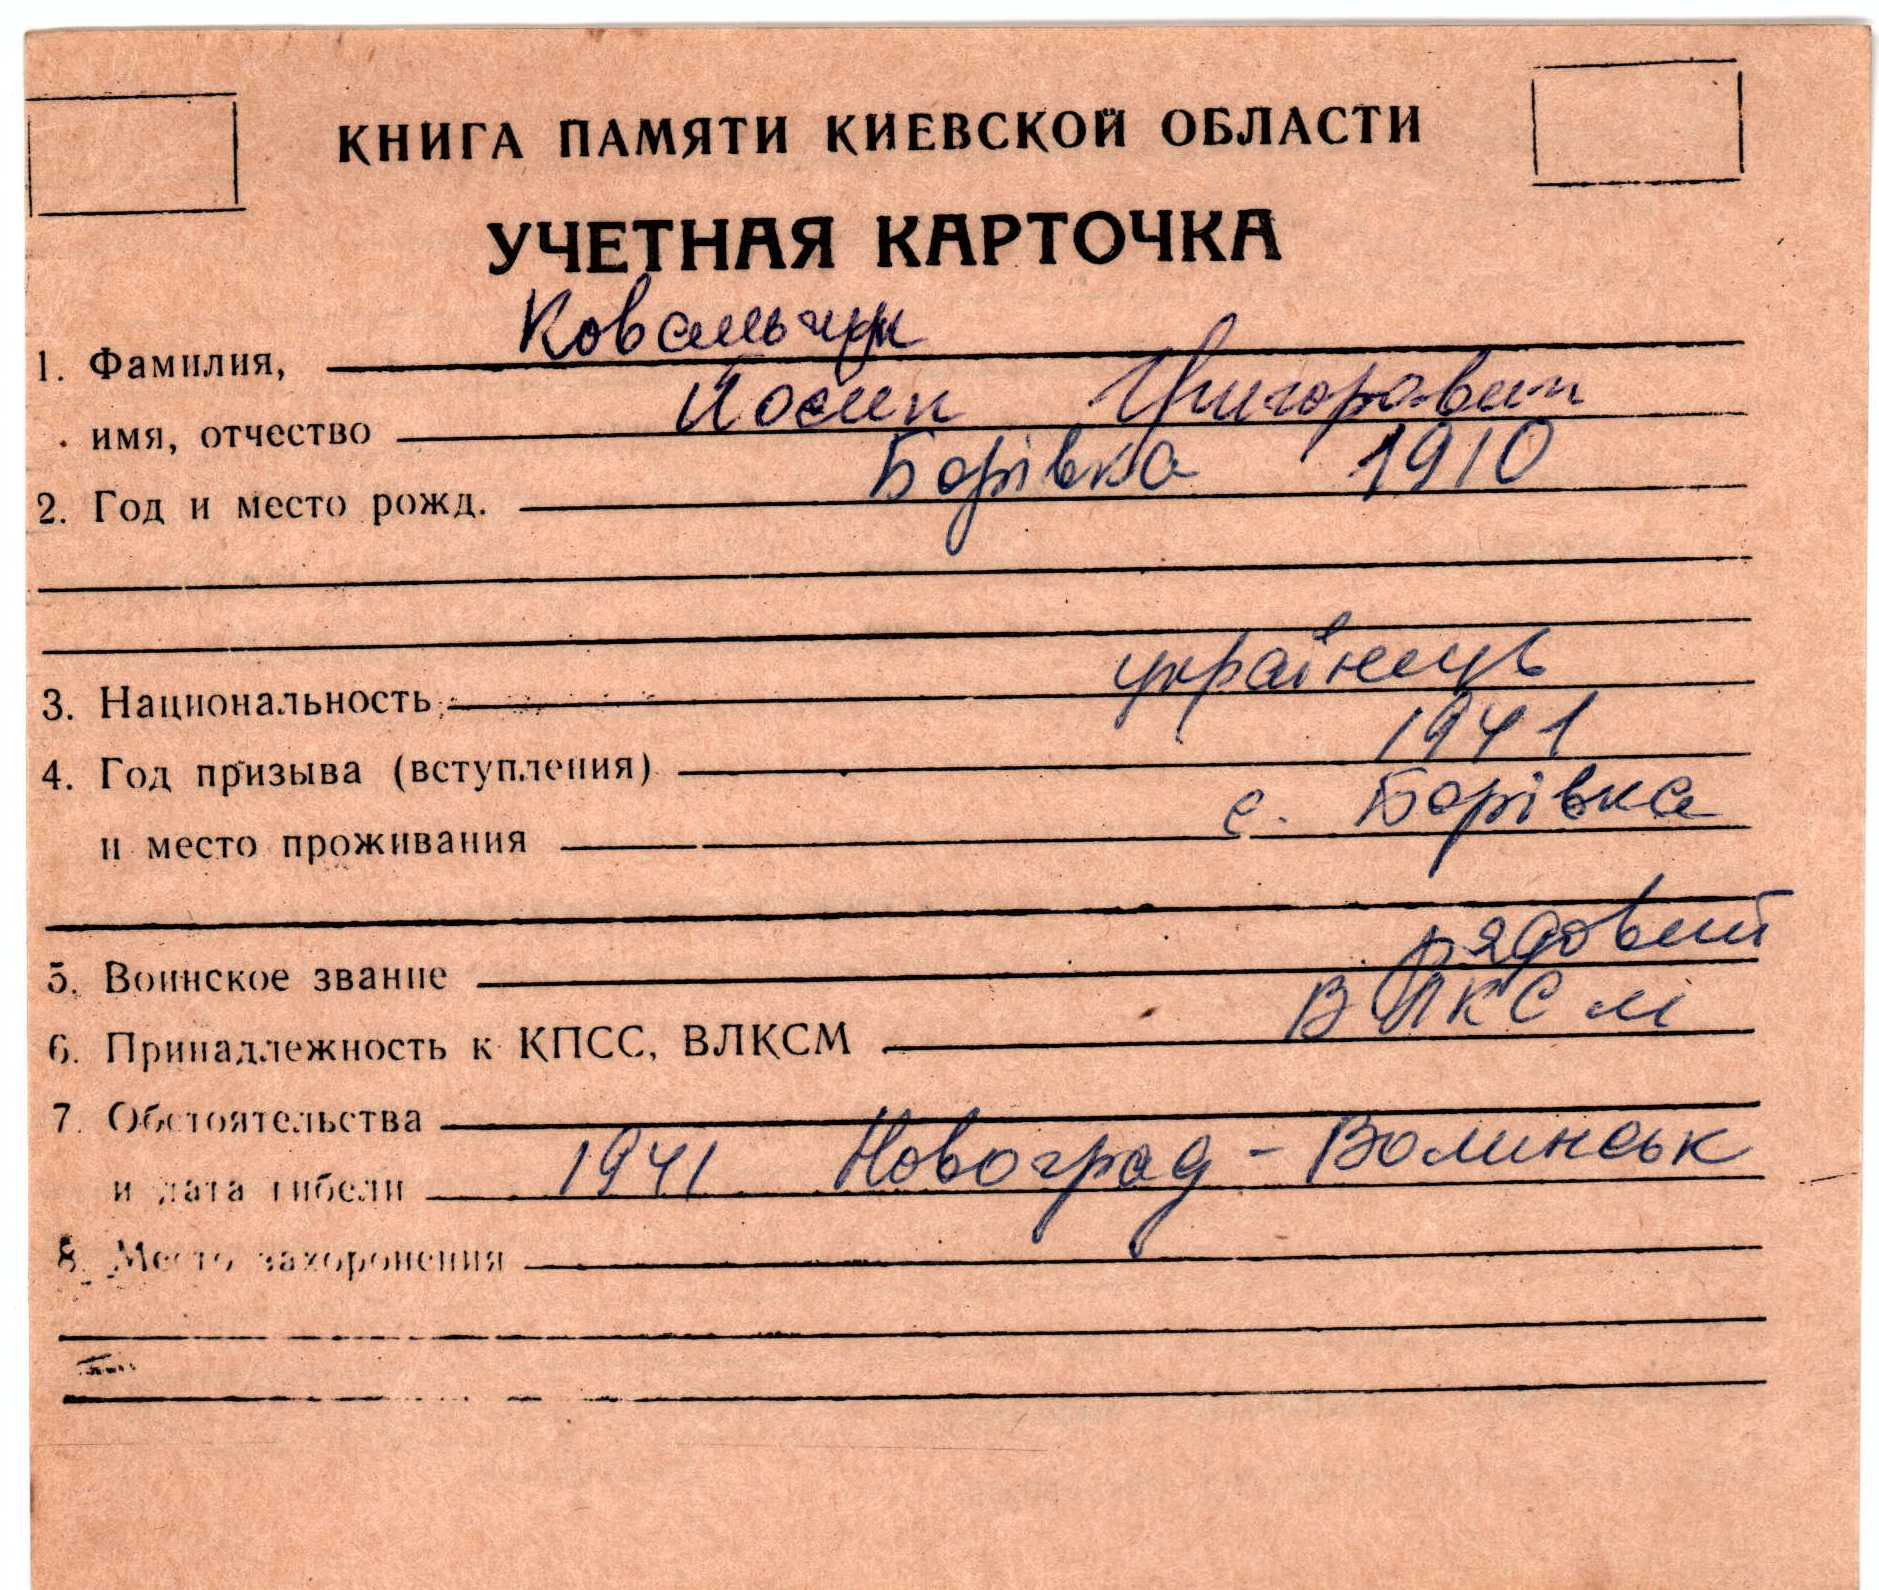 КНИГА ПАМЯТИ КИЕВСКОЙ ОБЛАСТИ
УЧЕТНАЯ КАРТОЧКА
1. Фамилия, Ковальчук
имя, отчество Йосип Григорович
2. Год и место рожд. Борівка 1910
3. Национальность українець
4. Год призыва (вступления) 1941
и место проживания с. Борівка
5. Воинское звание рядовий
6. Принадлежность к КПСС, ВЛКСМ ВЛКСМ
7. Обстоятельства
и дата гибели 1941 Новоград-Волинськ
8. Место захоронения